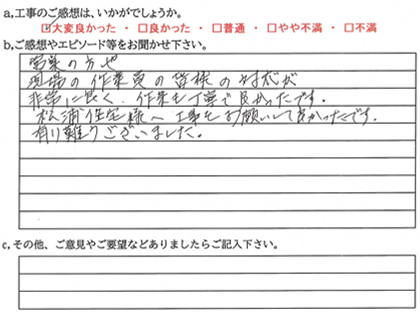 a,工事のご感想は、いかがでしょうか。
☑大変良かった ・ □良かった ・ □普通 ・ □やや不満 ・ □不満
b,ご感想やエピソード等をお聞かせ下さい。
営業の方や
現場の作業員の皆様の対応が
非常に良く、作業も丁寧で良かったです。
松浦住宅様へ工事をお願いして良かったです。
有り難うございました。
c,その他、ご意見やご要望などありましたらご記入下さい。